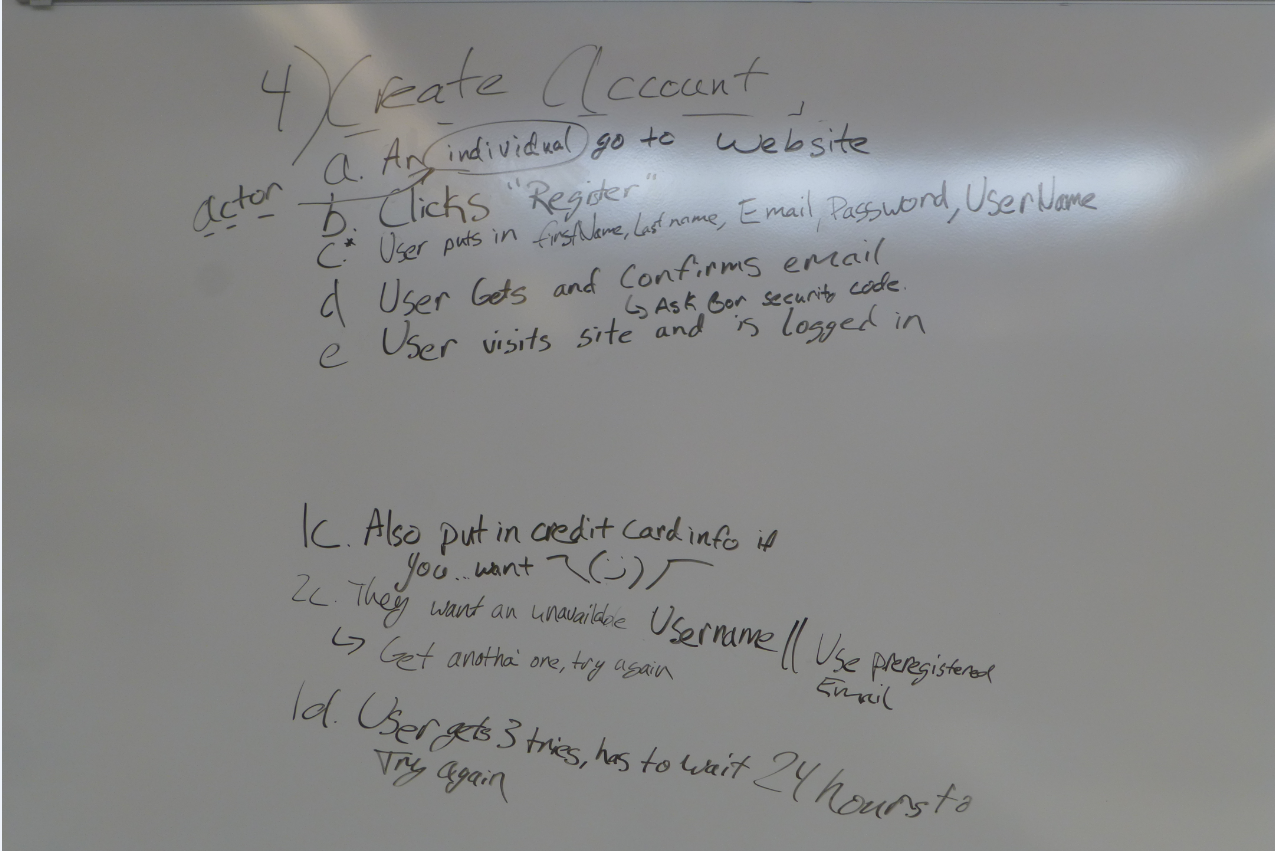 4) Create Account
a. An individual go to website
actor
b. Clicks "Register"
c.* User puts in firstName, Last name, Email, Password, UserName
d User Gets and Confirms email
↳ Ask for security code.
e User visits site and is logged in
1c. Also put in credit card info if
you... want ¯\(ツ)/¯
2c. They want an unavailable Username || Use preregistered
Email
↳ Get anotha' one, try again
1d. User gets 3 tries, has to wait 24 hours to
Try again